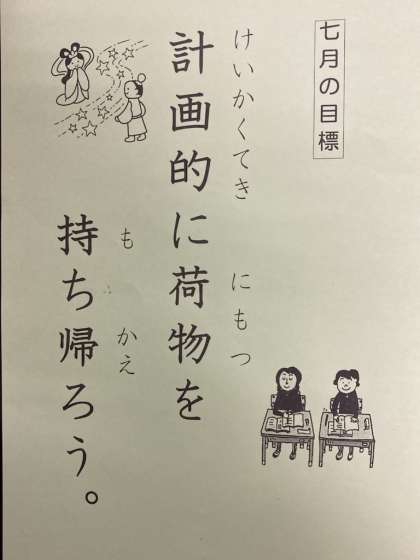 七月の目標
けいかくてき にもつ
計画的に荷物を
も かえ
持ち帰ろう。